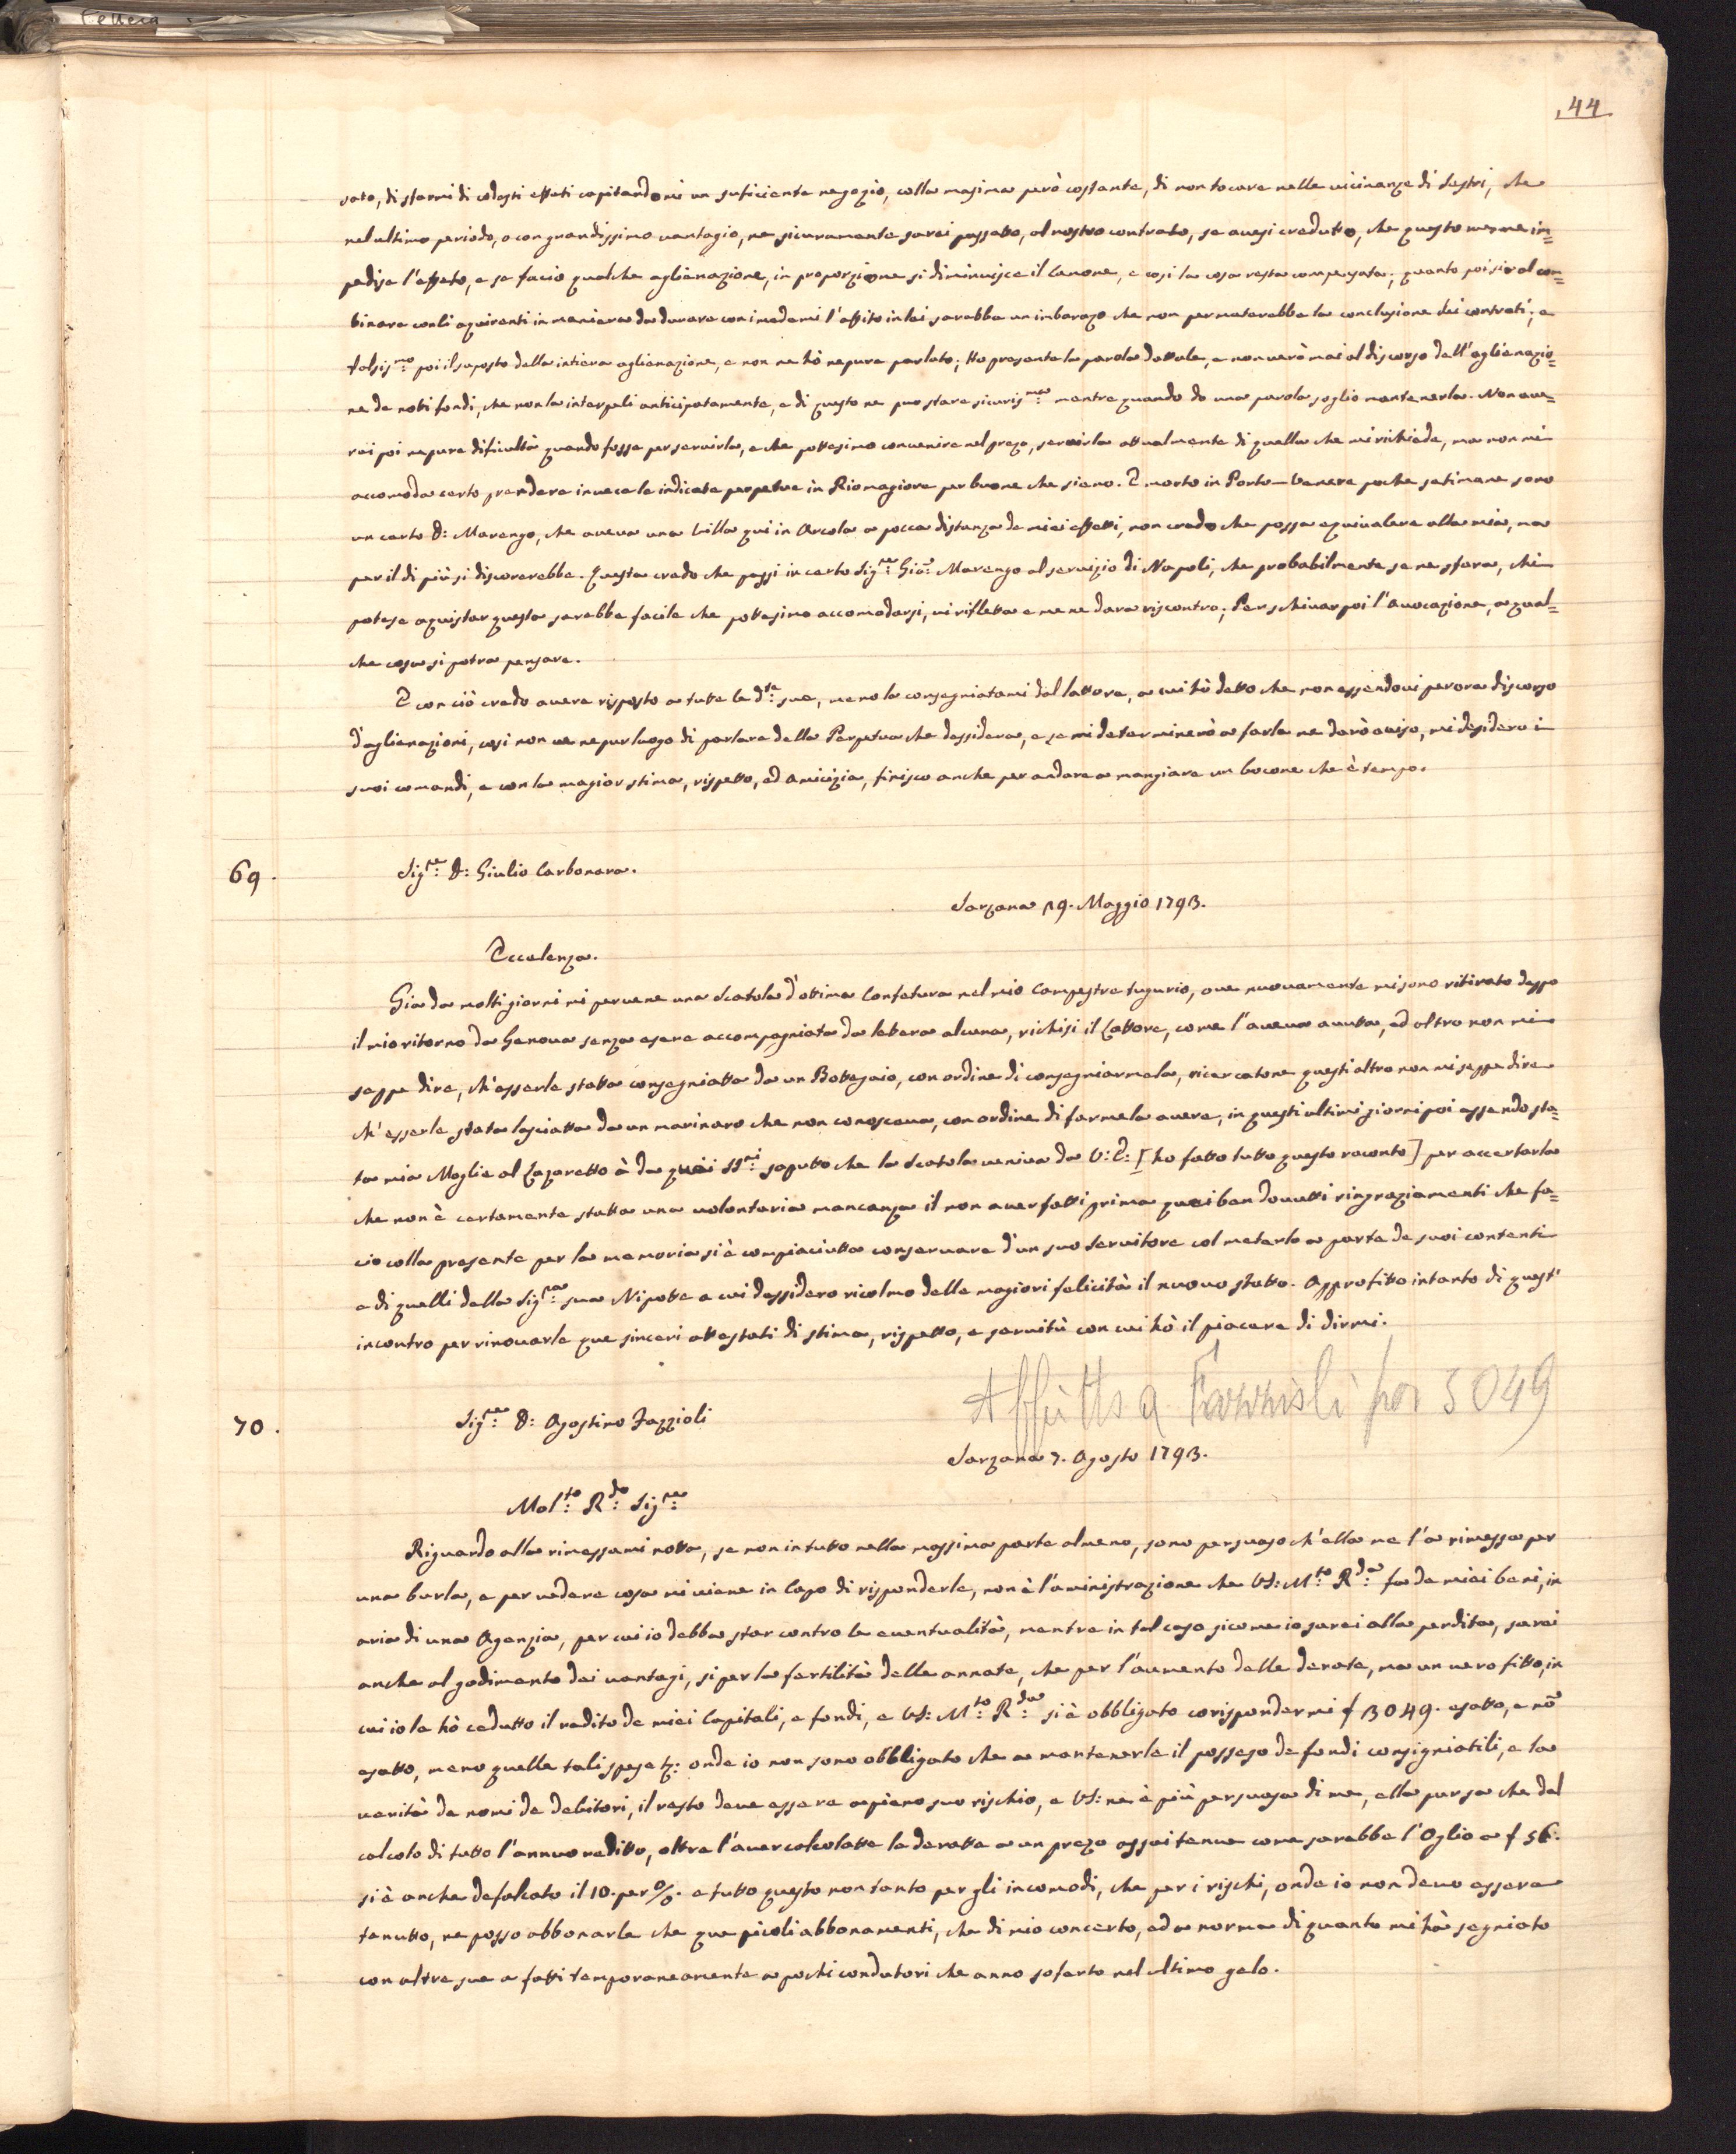 44
sato, di sfarmi di codesti effeti capitandomi un suficiente negozio, colla masima però costante, di non tocare nelle vicinanze di Sestri, che
nel ultimo periodo, o con grandissimo vantagio, ne sicuramente sarei passatto, al nostro contrato, se avesi credutto, che questo me ne im=
pedise l'effeto, e se facio qualche aglienazione, in proporzione si diminuisce il Canone, e cosi la cosa resta compensata; quanto poi sia al com=
binare con li aquirenti in maniera da durare con i medemi l'affito in lei sarebbe un imbarazo che non permeterebbe la conclusione dei contrati; e
falsis:mo poi il suposto della intiera aglienazione, e non ne hò nepure parlato; Ho presente la parola dattale, e non verò mai al discorso dell'aglienazio=
ne de noti fondi, che non la interpeli anticipatamente, e di questo ne puo stare sicuris:ma mentre quando do una parola soglio mantenerla. Non ave=
rei poi nepure dificultà quando fosse per servirla, e che pottesimo convenire nel prezo, servirla attualmente di quella che mi richiede, ma non mi
accomoda certo prendere in vece le indicate perpetue in Riomagiore per buone che sieno. E morto in Porto-Venere poche setimane sono
un certo D: Marengo, che aveva una Villa qui in Arcola a pocca distanza de miei effetti, non credo che possa equivalere alla mia, ma
per il di più si discorerebbe. Questa credo che passi in certo Sig:re Gio: Marengo al servizio di Napoli, che probabilmente se ne sfara, chi
potese aquistar questa sarebbe facile che pottesimo accomodarsi, vi rifletta e me ne dara riscontro; Per schivar poi l'avocazione, a qual=
che cosa si potra pensare.
E con ciò credo avere risposto a tutte le d:te sue, meno la consegniatami dal lattore, a cui hò detto che non essendovi per ora discorso
d'aglienazioni, cosi non ve nepur luogo di parlare della Perpetua che dessidera, e se mi determinerò a farla ne darò aviso, mi desidero i
suoi comandi, e con la magior stima, rispetto, ed amicizia, finisco anche per andare a mangiare un bocone che è tempo.
69.
Sig:re D: Giulio Carbonara.
Sarzana 19. Maggio 1793.
Eccelenza.
Gia da molti giorni mi pervene una Scatola d'ottima Confetura nel mio Campestre tugurio, ove nuovamente mi sono ritirato doppo
il mio ritorno da Genova senza esere accompagniata da letera alcuna, richisi il Lattore, come l'aveva avutta, ed altro non mi
seppe dire, ch'esserle statta consegniatta da un Bottegaio, con ordine di consegniarmela, ricercatone questi altro non mi seppe dire
ch'esserle stata lasciatta da un marinaro che non conosceva, con ordine di farmela avere, in questi ultimi giorni poi essendo sta=
ta mia Moglie al Lazaretto à da quei SS:ri saputto che la Scatola veniva da V: E: [ho fatto tutto questo raconto] per accertarla
che non è certamente statta una volontaria mancanza il non aver fatti prima quei ben dovutti ringraziamenti che fa=
cio colla presente per la memoria si è compiaciutta conservare d'un suo Servitore col meterlo a parte de suoi contenti
e di quelli della Sig:ra sua Nipotte a cui dessidero ricolmo delle magiori felicità il nuovo statto. Approfitto intanto di quest'
incontro per rinovarle que sinceri attestati di stima, rispetto, e servitù con cui hò il piacere di dirmi.
Affitto a per 3049
70.
Sig:re D: Agostino Fazzioli
Sarzana 7. Agosto 1793.
Mol:to R:do Sig:re
Riguardo alla rimessami notta, se non in tutto nella massima parte almeno, sono persuaso ch'ella me l'a rimessa per
una burla, e per vedere cosa mi viene in Capo di risponderle, non è l'aministrazione che VS: M:to R:da fa de miei beni, in
aria di una Agenzia, per cui io debba star contro le eventualità, mentre in tal caso sicome io sarei alla perdita, sarei
anche al godimento dei vantagi, si per la fertilità delle annate, che per l'aumento delle derate, ma un vero fitto, in
cui io le hò cedutto il redito de miei Capitali, e fondi, e VS: M:to R:da si è obbligato corispondermi f 3049. esatto, e nō
esatto, meno quelle tali spese &: onde io non sono obbligato che a mantenerle il possesso de fondi consigniatili, e la
verità de nomi de debitori, il resto deve essere a pieno suo rischio, e VS: ne è più persuasa di me, ella pur sa che dal
calcolo di tutto l'annuo reditto, oltre l'aver calcolatte le deratte a un prezo assai tenue come sarebbe l'Oglio a f 56.
si è anche defalcato il 10. per %. e tutto questo non tanto per gli incomodi, che per i rischi, onde io non devo essere
tenutto, ne posso abbonarle che que picoli abbonamenti, che di mio concerto, ed a norma di quanto mi hà segniato
con altre sue a fatti temporaneamente a pochi condutori che anno soferto nel ultimo gelo.